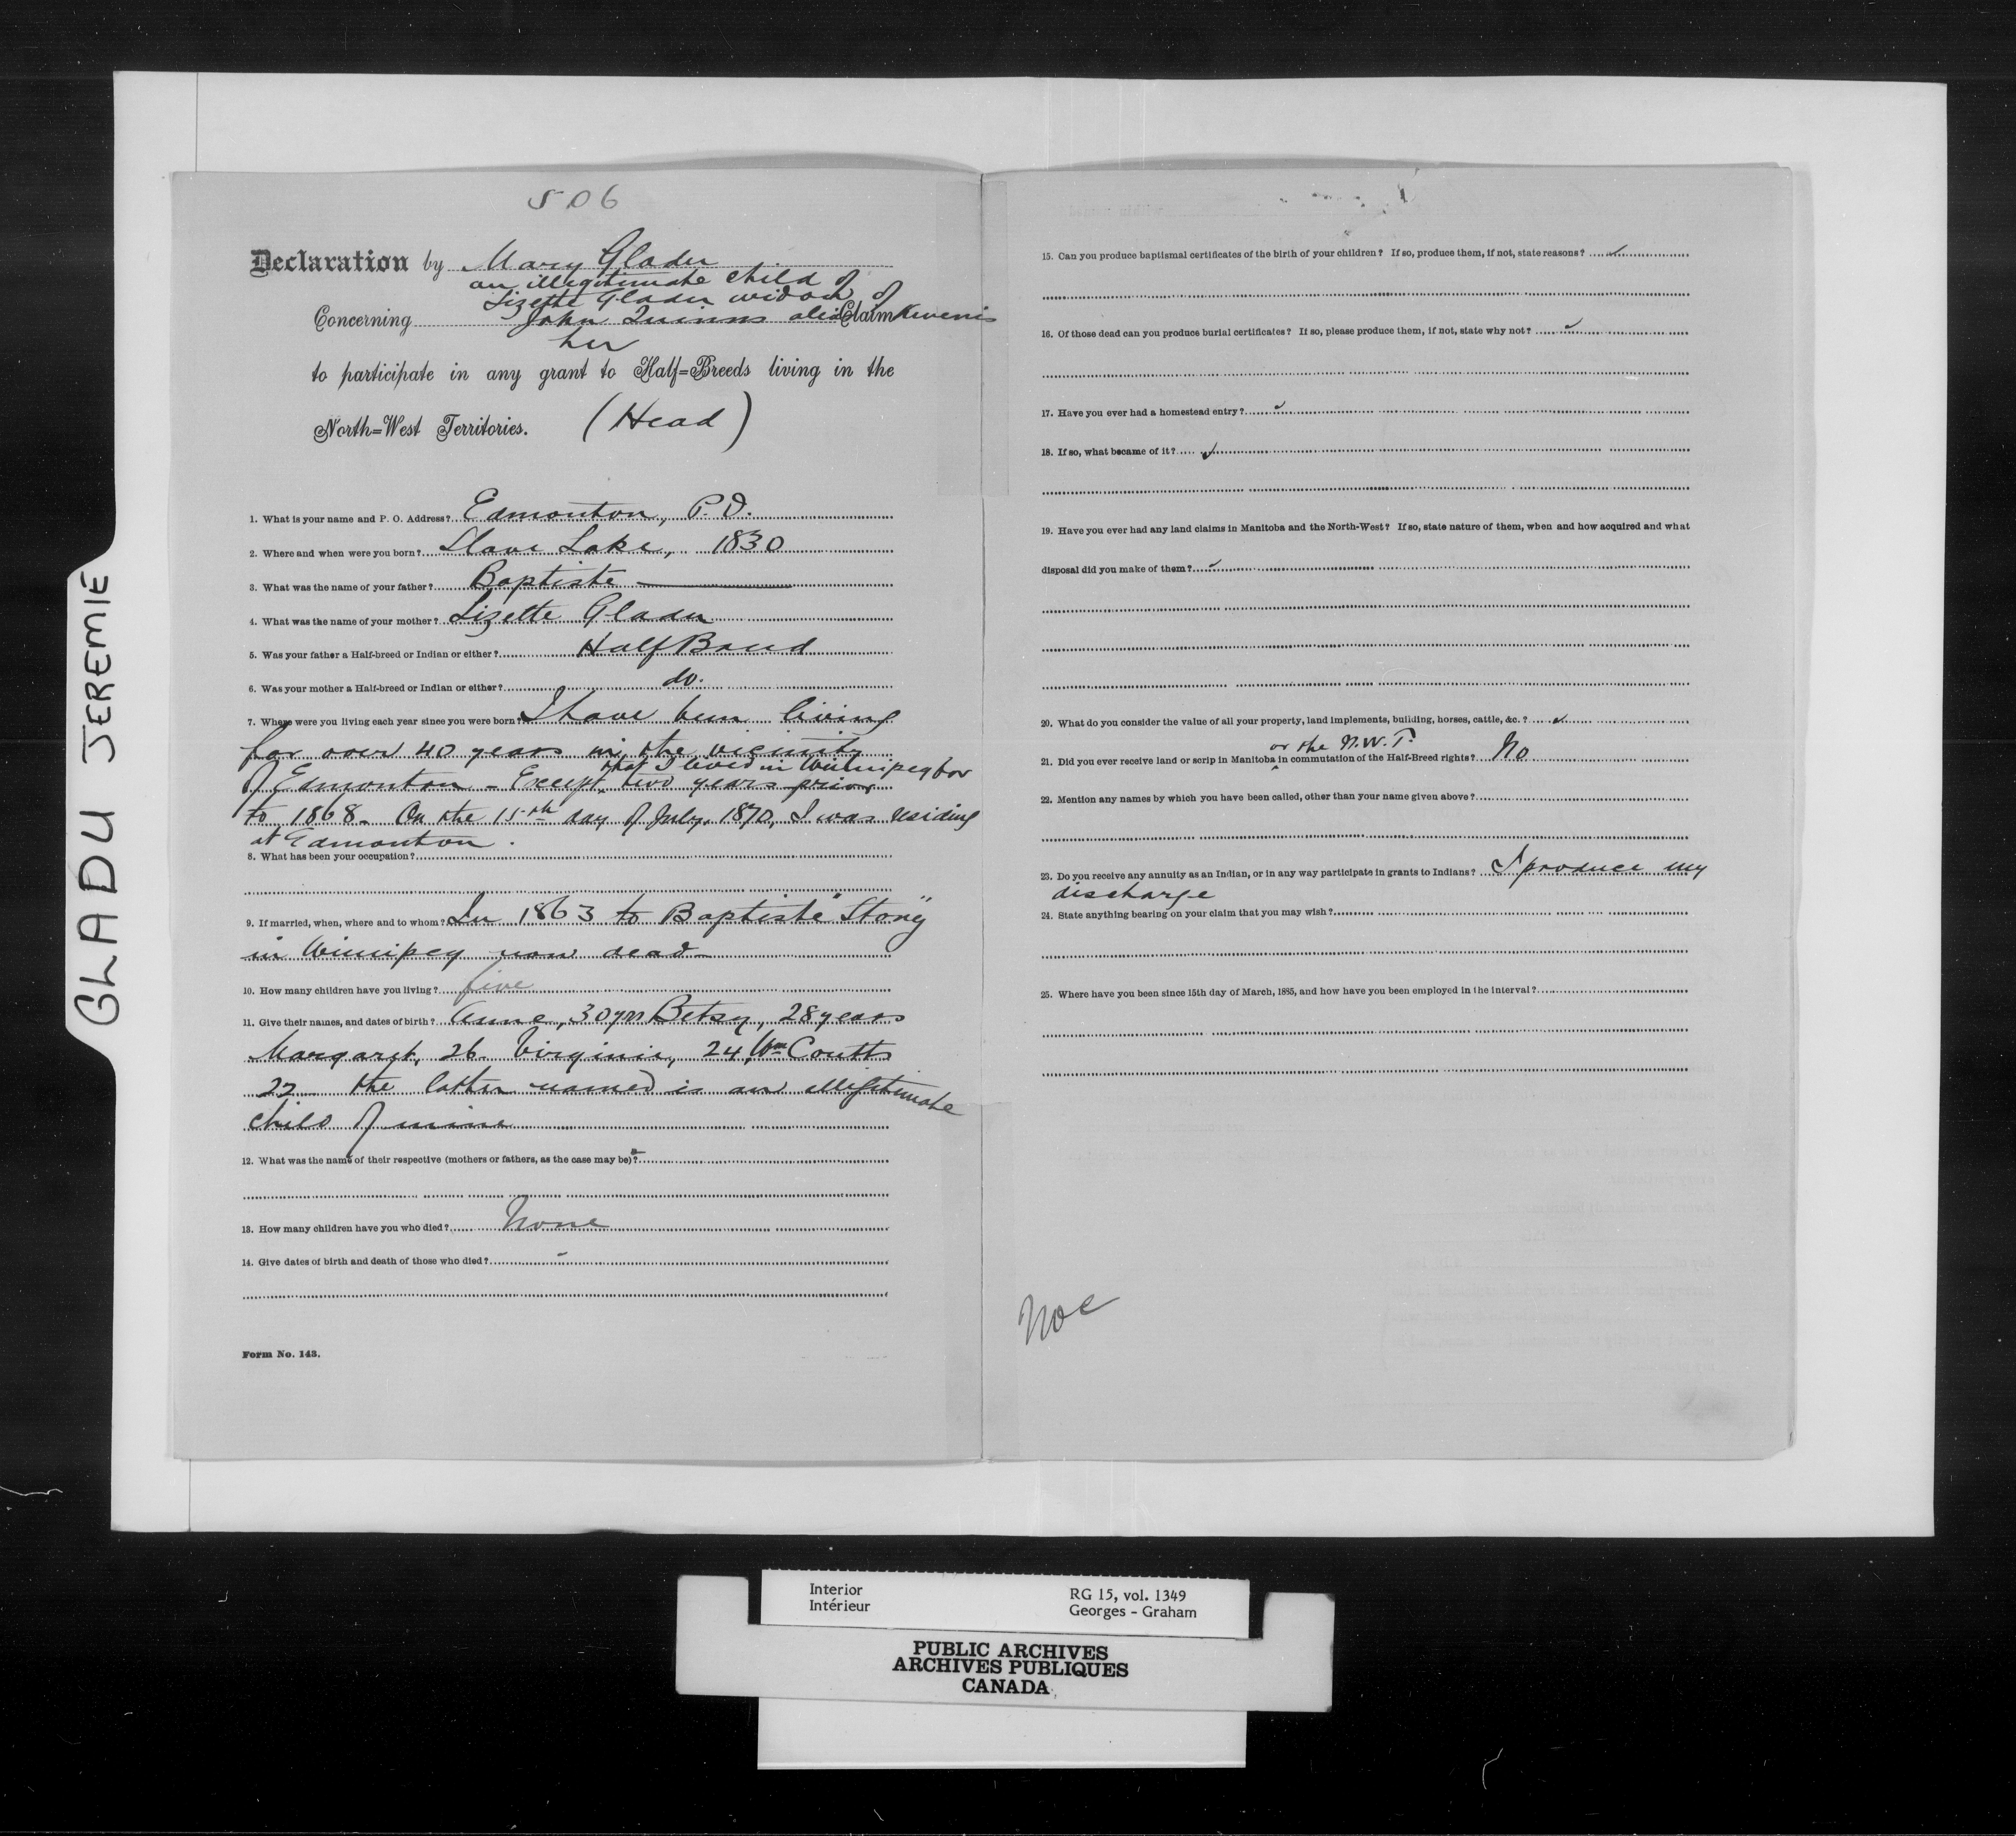 GLADU JEREMIE
506
Declaration by Mary Gladu
an illegitimate child of
Lizette Gladu widow of
Concerning John Quinns alias Claim Kewenis
her
to participate in any grant to Half=Breeds living in the
North=West Territories. (Head)
1. What is your name and P. O. Address? Edmonton, P.O.
2. Where and when were you born? Slave Lake, 1830
3. What was the name of your father? Baptiste —
4. What was the name of your mother? Lizette Gladu
5. Was your father a Half-breed or Indian or either? Half Breed
6. Was your mother a Half-breed or Indian or either? do.
7. Where were you living each year since you were born? I have been living
for over 40 years in the vicinity
that I lived in Winnipeg for
of Edmonton - Except two years prior
to 1868. On the 15th day of July, 1870, I was residing
at Edmonton.
8. What has been your occupation?
9. If married, when, where and to whom? In 1863 to Baptiste "Stoney"
in Winnipeg now dead
10. How many children have you living? five
11. Give their names, and dates of birth? Anne, 30 yrs Betsy, 28 years
Margaret, 26. Virginie, 24, Wm Coutts
22 the latter named is an illegitimate
child of mine
12. What was the name of their respective (mothers or fathers, as the case may be)?
13. How many children have you who died? None
14. Give dates of birth and death of those who died?
Form No. 143.
15. Can you produce baptismal certificates of the birth of your children? If so, produce them, if not, state reasons?
16. Of those dead can you produce burial certificates? If so, please produce them, if not, state why not?
17. Have you ever had a homestead entry?
18. If so, what became of it?
19. Have you ever had any land claims in Manitoba and the North-West? If so, state nature of them, when and how acquired and what
disposal did you make of them?
20. What do you consider the value of all your property, land implements, building, horses, cattle, &c.?
or the N.W.T.
21. Did you ever receive land or scrip in Manitoba in commutation of the Half-Breed rights? No
22. Mention any names by which you have been called, other than your name given above?
23. Do you receive any annuity as an Indian, or in any way participate in grants to Indians? I produce my
discharge
24. State anything bearing on your claim that you may wish?
25. Where have you been since 15th day of March, 1885, and how have you been employed in the interval?
Interior
Intérieur
RG 15, vol. 1349
Georges - Graham
PUBLIC ARCHIVES
ARCHIVES PUBLIQUES
CANADA